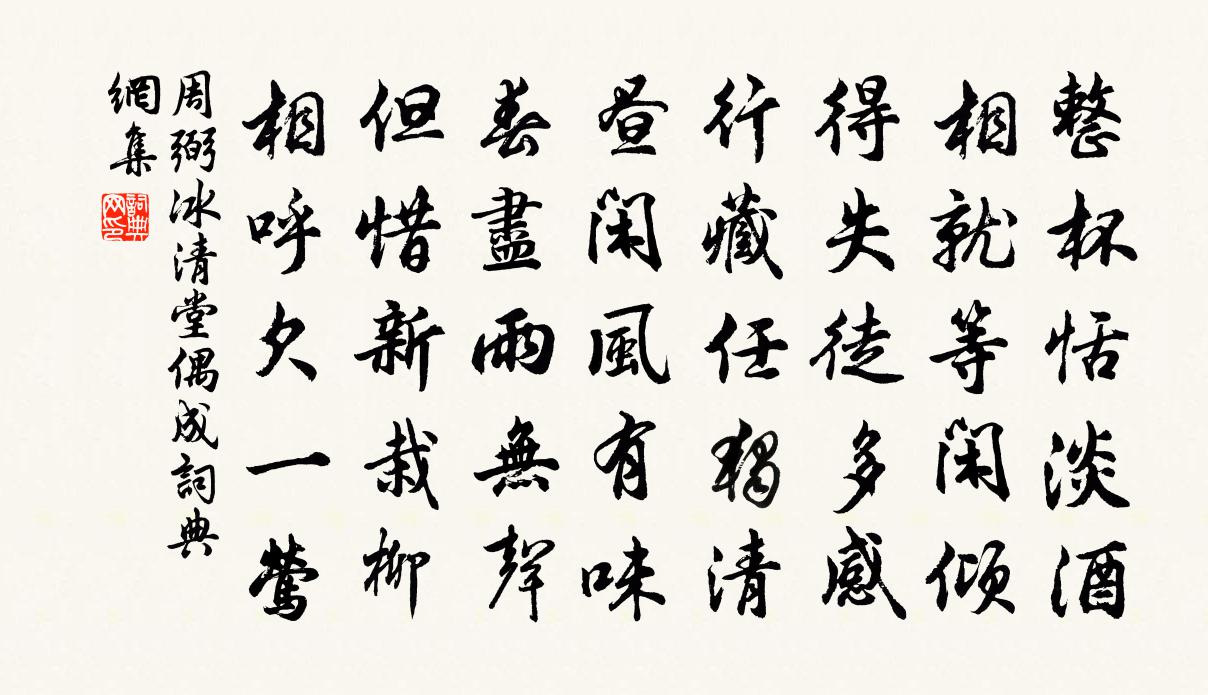 整杯恬淡酒
相就等閑傾
得失徒多感
行藏任獨清
昼閑風有味
春盡雨無聲
但惜新栽柳
相呼欠一鶯
周弼冰清堂偶成詞典
網集
詞典网印